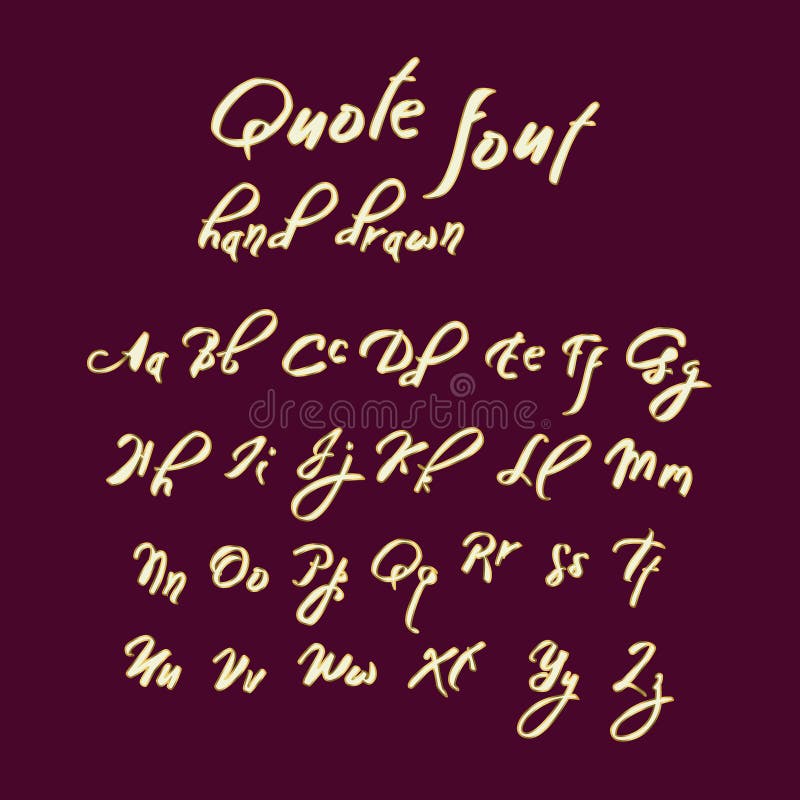 Quote font
hand drawn
Aa Bb Cc Dd Ee Ff Gg
dreamstime
Hh Ii Jj Kk Ll Mm
Nn Oo Pp Qq Rr Ss Tt
Uu Vv Ww Xx Yy Zz